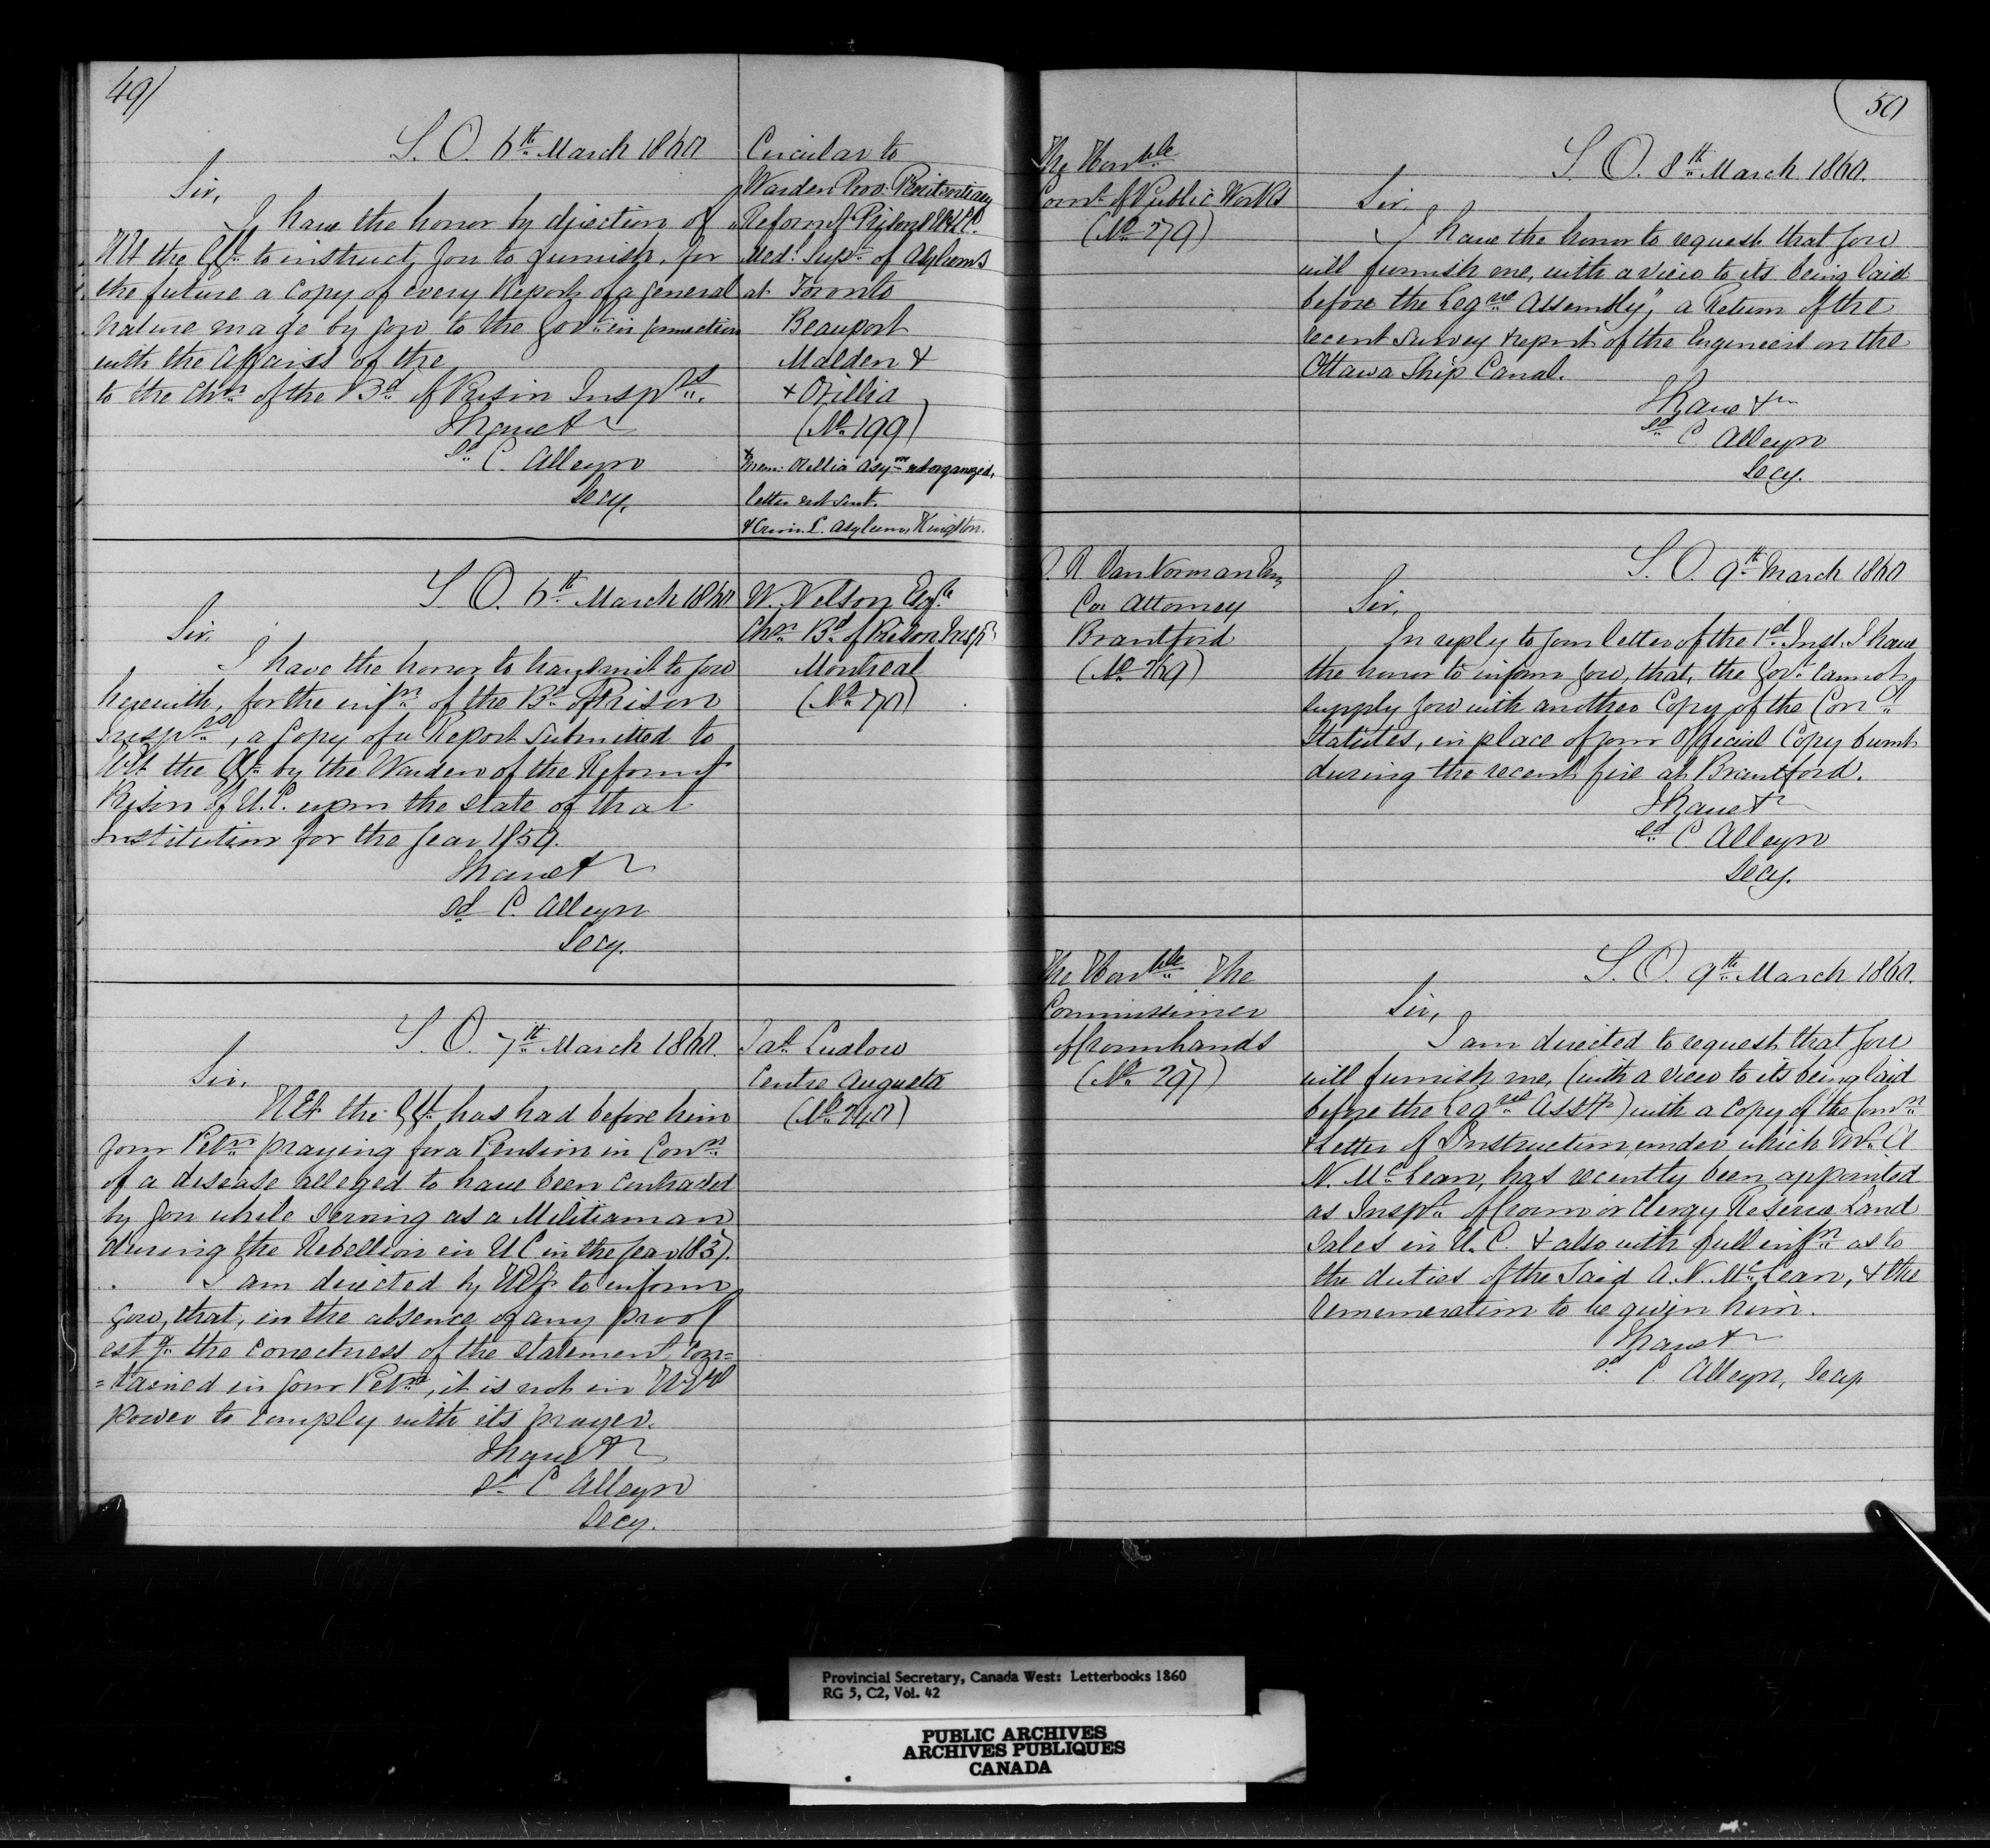 49)
S. O. 6th March 1860
Circular to
Warden Prov: Penitentiary
" Reformy Prisons U & L C.
Medl Supt of Asylums
at Toronto
Beauport
Malden &
+ Orillia
(No 199)
+ Mem: Orillia Asym not organized,
letter not sent.
& Crim. L. Asylum, Kingston.
Sir,
I have the honor by direction of
HE the GG to instruct you to furnish, for
the future a copy of every Report of a general
nature made by you to the Govt in connection
with the affairs of the
to the Chn of the Bd of Prison Insprs.
I have &c
sd C. Alleyn
Secy.
S. O. 6th March 1860
W. Nelson Esqre
Chn Bd of Prison Insprs
Montreal
(No 270)
Sir,
I have the honor to transmit to you
herewith, for the infn of the Bd of Prison
Insprs, a copy of a Report submitted to
HE the GG by the Warden of the Reformy
Prison of U.C. upon the state of that
Institution for the year 1859.
I have &c
sd C. Alleyn
Secy.
S. O. 7th March 1860.
Jas Ludlow
Centre Augusta
(No 240)
Sir,
HE the GG has had before him
your Petn praying for a Pension in Conn
of a disease alleged to have been contracted
by you while serving as a Militiaman
during the Rebellion in U C in the year 1837.
I am directed by HE to inform
you, that, in the absence of any proof
estg the correctness of the statement con=
=tained in your Petn, it is not in HE's
power to comply with its prayer.
I have &c
sd C Alleyn
Secy.
50
The Honble
Comr of Public Works
(No 279)
S O. 8th March 1860.
Sir,
I have the honor to request that you
will furnish me, with a view to its being laid
before the Legve Assembly", a Return of the
recent survey & report of the Engineers on the
Ottawa Ship Canal.
I have &c
sd C Alleyn
Secy.
Van Norman Esq
Co. Attorney
Brantford
(No 269)
S. O. 9th March 1860
Sir,
In reply to your letter of the 1st Inst. I have
the honor to inform you, that, the Govt cannot
supply you with another Copy of the Cond
Statutes, in place of your Official Copy burnt
during the recent fire at Brantford.
I have &c
sd C Alleyn
Secy.
The Honble The
Commissioner
of Crown Lands
(No 297)
S. O. 9th March 1860.
Sir,
I am directed to request that you
will furnish me, (with a view to its being laid
before the Legve Assy) with a copy of the Comn
& Letter of Instruction under which Mr A
N. McLean, has recently been appointed
as Inspr of Crown or Clergy Reserve Land
Sales in U. C. & also with full infn as to
the duties of the said A. N. McLean, & the
remuneration to be given him.
I have &c
sd C. Alleyn, Secy
Provincial Secretary, Canada West: Letterbooks 1860
RG 5, C2, Vol. 42
PUBLIC ARCHIVES
ARCHIVES PUBLIQUES
CANADA